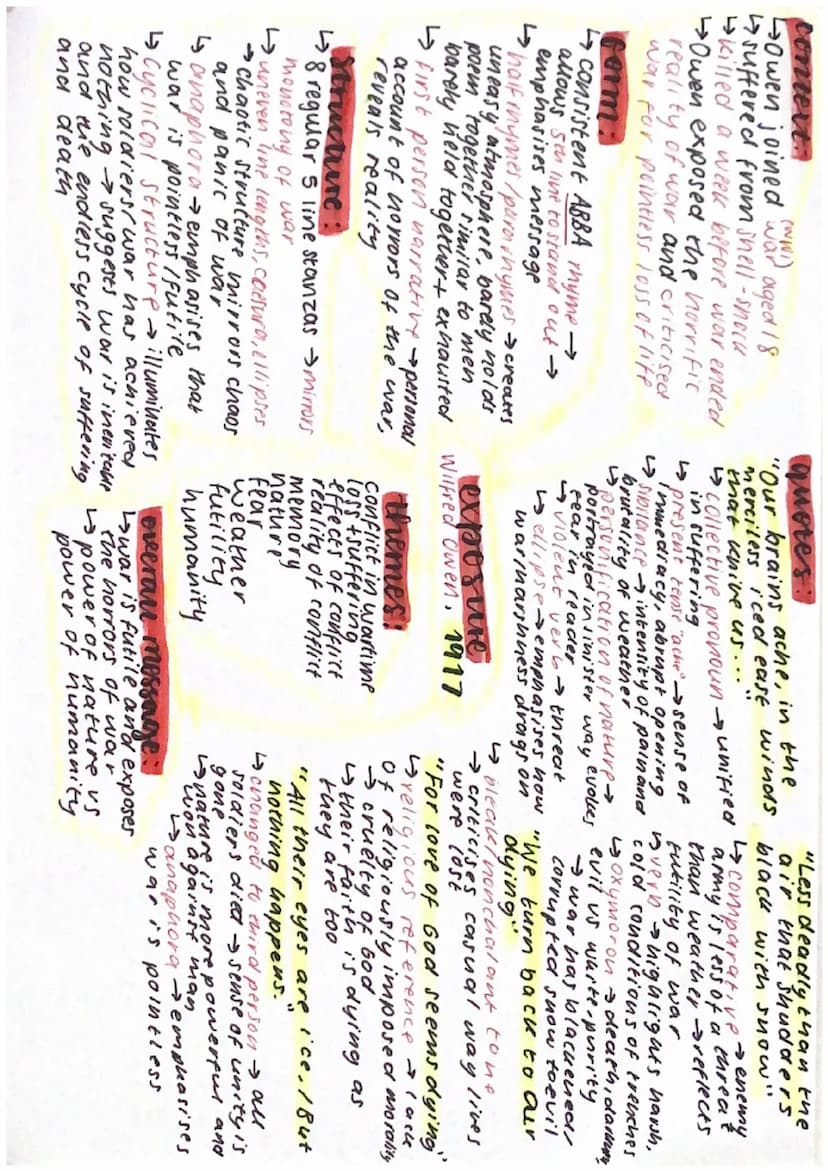 context:
↳ Owen joined (WW1) war aged 18
↳ suffered from shell-shock
↳ killed a week before war ended
↳ Owen exposed the horrific
reality of war and criticised
war for pointless loss of life
form:
↳ consistent ABBA rhyme →
allows 5th line to stand out →
emphasises message
↳ half rhymes/pararhymes → creates
uneasy atmosphere, barely holds
poem together similar to men
barely held together + exhausted
↳ first person narrative → personal
account of horrors of the war,
reveals reality
structure:
↳ 8 regular 5 line stanzas → mirrors
monotony of war
↳ uneven line lengths, caesura, ellipses
→ chaotic structure mirrors chaos
and panic of war
↳ anaphora → emphasises that
war is pointless/futile
↳ cyclical structure → illuminates
how soldiers/war has achieved
nothing → suggests war is
and the endless cycle of suffering
and death
quotes:
"Our brains ache, in the
merciless iced east winds
that knive us..."
↳ collective pronoun → unified
in suffering
↳ present tense "ache" → sense of
immediacy, abrupt opening
↳ sibilance → intensity of pain and
brutality of weather
↳ personification of nature →
portrayed in sinister way evokes
fear in reader
↳ violent verb → threat
↳ ellipse → emphasises how
war/harshness drags on
exposure
Wilfred Owen, 1917
themes:
conflict in wartime
loss + suffering
effects of conflict
reality of conflict
memory
nature
fear
weather
futility
humanity
overall message:
↳ war is futile and exposes
the horrors of war
↳ power of nature vs
power of humanity
"Less deadly than the
air that shudders
black with snow"
↳ comparative → enemy
army is less of a threat
than weather → reflects
futility of war
↳ verb → highlights harsh,
cold conditions of trenches
↳ oxymoron → death, darkness,
evil vs white-purity
→ war has blackened/
corrupted snow to evil
"We turn back to our
dying"
↳ bleak/nonchalant tone
→ criticises casual way lives
were lost
"For love of God seems dying"
↳ religious reference → lack
of religiously imposed morality
→ cruelty of God
↳ their faith is dying as
they are too
"All their eyes are ice, / But
nothing happens."
↳ changed to third person → all
soldiers died → sense of unity is
gone
↳ nature is more powerful and
won against man
↳ anaphora → emphasises
war is pointless